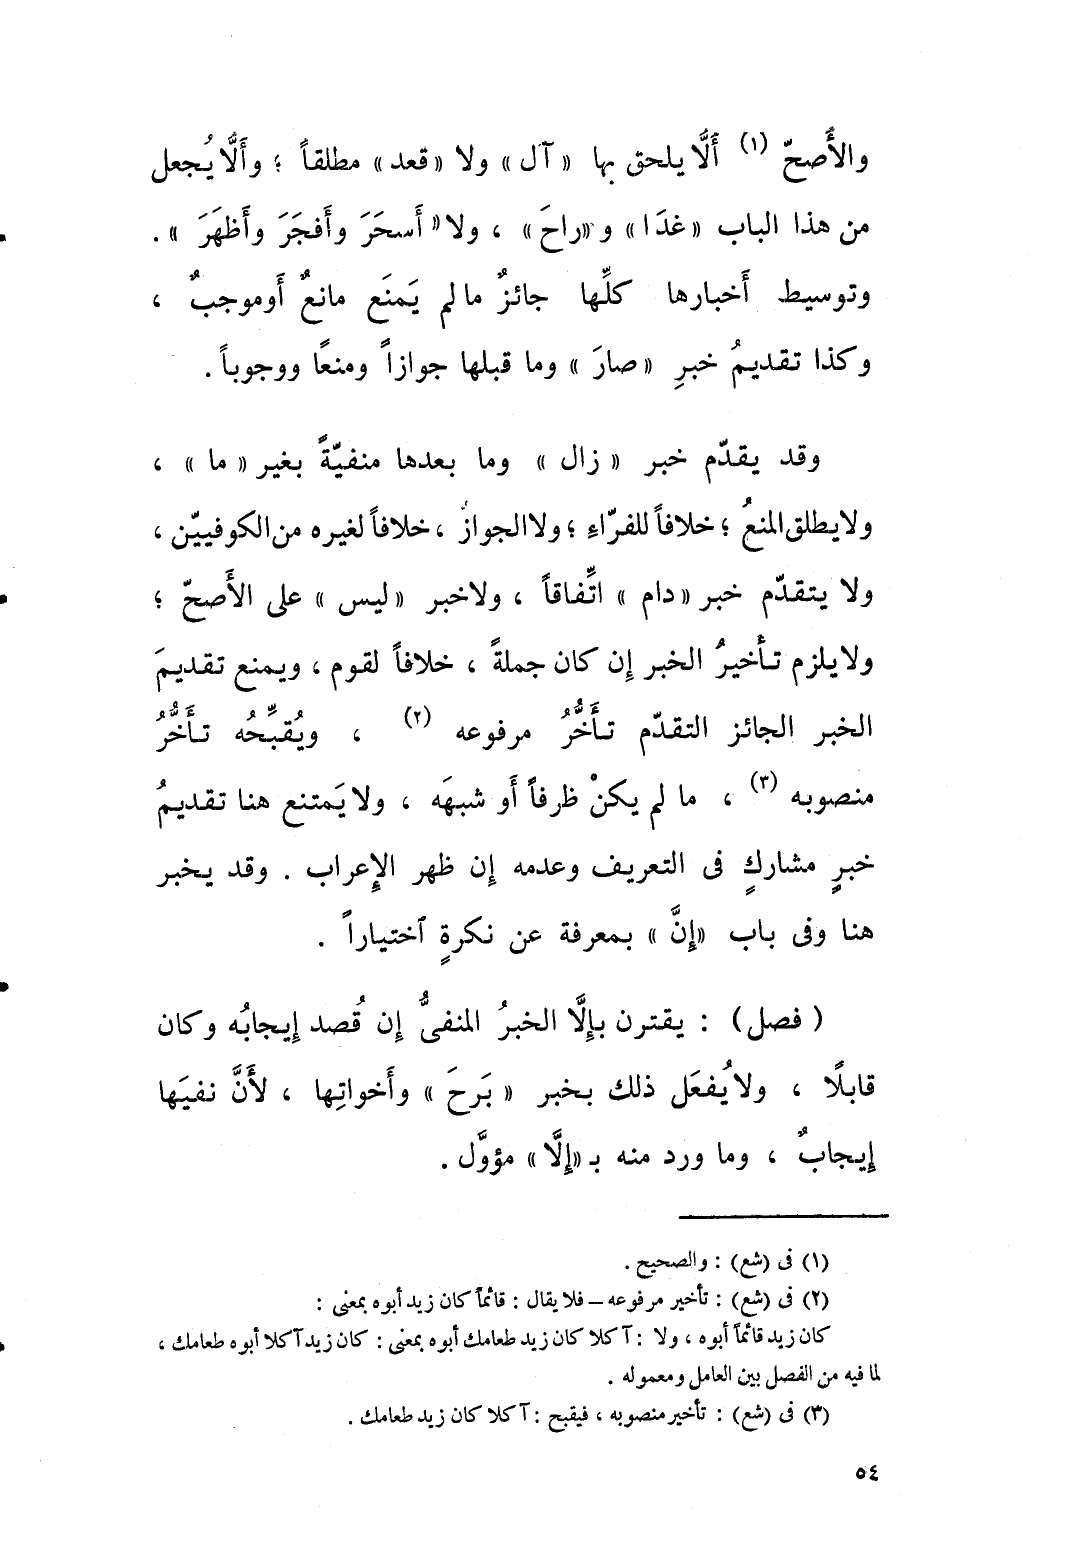 والأَصحّ (١) أَلَّا يلحق بها «آل» ولا «قعد» مطلقاً ؛ وأَلَّا يُجعل
من هذا الباب «غدَا» و«راحَ» ، ولا «أَسحَرَ وأَفجَرَ وأَظهَرَ» .
وتوسيط أَخبارها كلِّها جائزٌ مالم يَمنَع مانعٌ أَوموجبٌ ،
وكذا تقديمُ خبرِ «صارَ» وما قبلها جوازاً ومنعًا ووجوباً .
وقد يقدّم خبر «زال» وما بعدها منفيّةً بغير «ما» ،
ولايطلق المنعُ ؛ خلافاً للفرّاءِ ؛ ولاالجوازُ ، خلافاً لغيره من الكوفييّن ،
ولا يتقدّم خبر «دام» اتِّفاقاً ، ولاخبر «ليس» على الأَصحّ ؛
ولايلزم تأخيرُ الخبر إن كان جملةً ، خلافاً لقوم ، ويمنع تقديمَ
الخبر الجائز التقدّم تأَخُّرُ مرفوعه (٢) ، ويُقبِّحُه تأَخُّرُ
منصوبه (٣) ، ما لم يكنْ ظرفاً أَو شبهَه ، ولا يَمتنع هنا تقديمُ
خبرٍ مشاركٍ فى التعريف وعدمه إن ظهر الإعراب . وقد يخبر
هنا وفى باب «إنَّ» بمعرفة عن نكرةٍ ٱختياراً .
(فصل) : يقترن بإلَّا الخبرُ المنفىُّ إن قُصد إيجابُه وكان
قابلًا ، ولا يُفعَل ذلك بخبر «بَرحَ» وأَخواتِها ، لأَنَّ نفيَها
إيجابٌ ، وما ورد منه بـ«إلَّا» مؤوَّل .
(١) فى (شع) : والصحيح .
(٢) فى (شع) : تأخير مرفوعه – فلا يقال : قائماً كان زيد أبوه بمعنى :
كان زيد قائماً أبوه ، ولا : آكلا كان زيد طعامك أبوه بمعنى : كان زيد آكلا أبوه طعامك ،
لما فيه من الفصل بين العامل ومعموله .
(٣) فى (شع) : تأخير منصوبه ، فيقبح : آكلا كان زيد طعامك .
٥٤